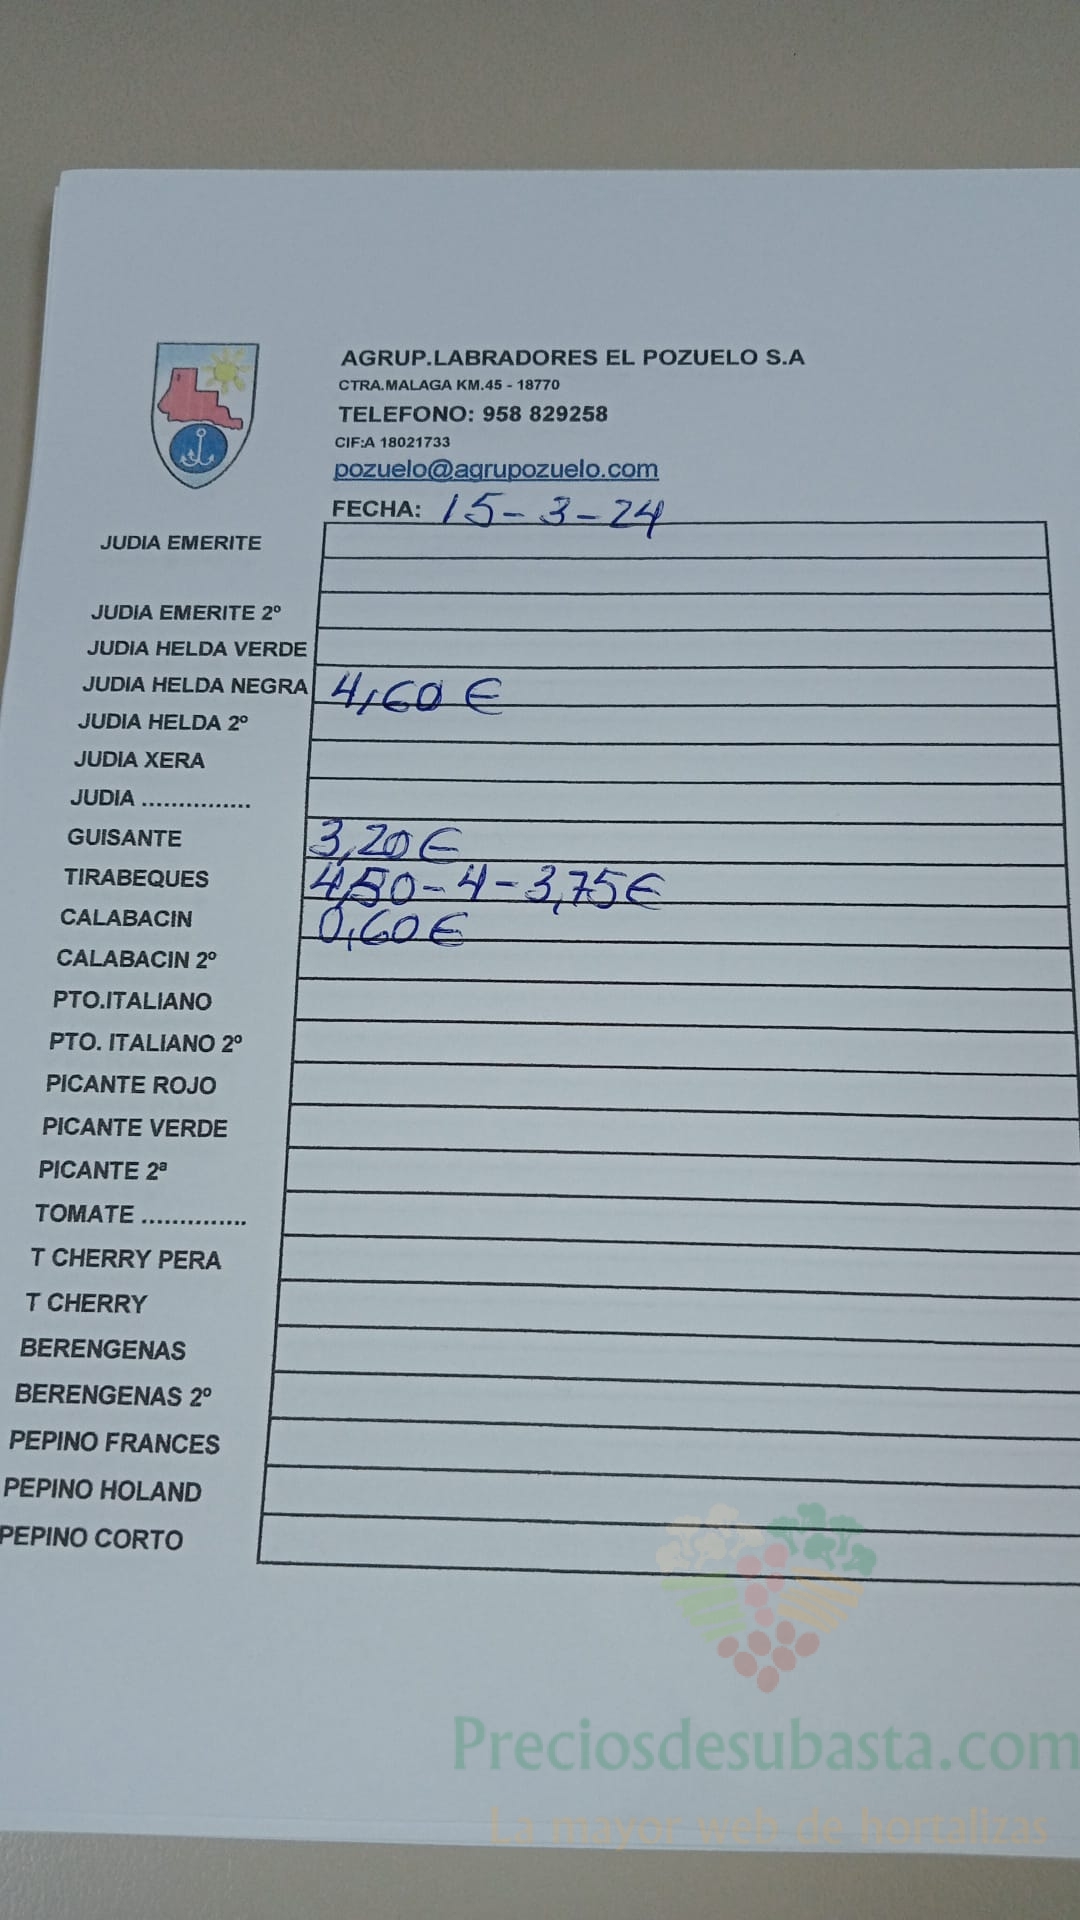 AGRUP.LABRADORES EL POZUELO S.A
CTRA.MALAGA KM.45 - 18770
TELEFONO: 958 829258
CIF:A 18021733
pozuelo@agrupozuelo.com
FECHA: 15-3-24
JUDIA EMERITE
JUDIA EMERITE 2º
JUDIA HELDA VERDE
JUDIA HELDA NEGRA 4,60 €
JUDIA HELDA 2º
JUDIA XERA
JUDIA ...............
GUISANTE 3,20 €
TIRABEQUES 4,50-4-3,75 €
CALABACIN 0,60 €
CALABACIN 2º
PTO.ITALIANO
PTO. ITALIANO 2º
PICANTE ROJO
PICANTE VERDE
PICANTE 2ª
TOMATE ..............
T CHERRY PERA
T CHERRY
BERENGENAS
BERENGENAS 2º
PEPINO FRANCES
PEPINO HOLAND
PEPINO CORTO
Preciosdesubasta.com
La mayor web de hortalizas